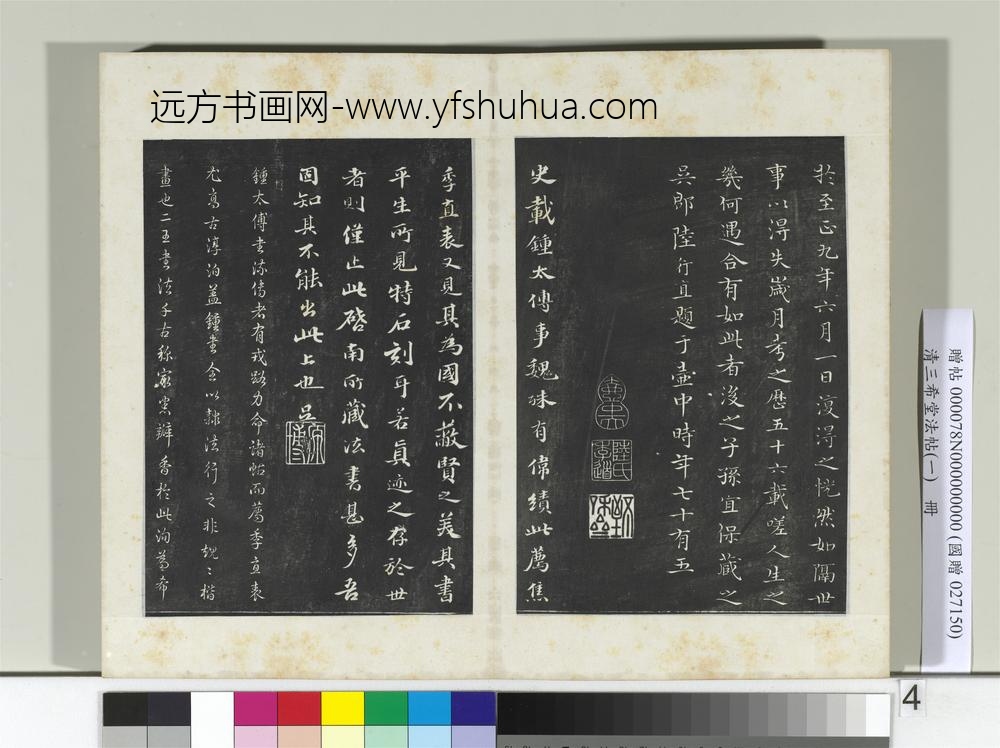 远方书画网-www.yfshuhua.com
扵至正九年六月一日復淂之恍然如隔世
事以淂失嵗月考之歴五十六載嗟人生之
幾何遇合有如此者後之子孫宜保藏之
吳郡陸行直題于壷中時年七十有五
陸氏季道
史載鍾太傅事魏殊有偉績此薦焦
季直表又見其為國不蔽賢之美其書
平生所見特石刻耳若真迹之存於世
者則僅止此啓南所藏法書甚多吾
固知其不能出此上也吳
鍾太傅書流傳者有戎路力命諸帖而薦季直表
尤高古淳泊盖鍾書全以隸法行之非規〻楷
畫也二王書法千古稱宗瓣香於此洵為希
贈帖 000078N000000000 (國贈 027150)
清三希堂法帖(一) 冊
4